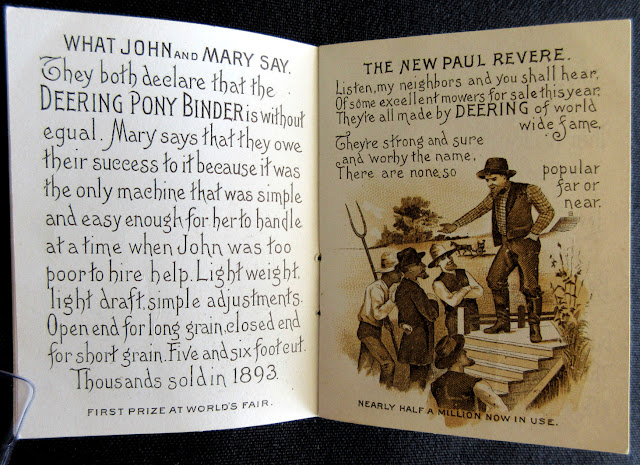 WHAT JOHN AND MARY SAY.
They both declare that the
DEERING PONY BINDER is without
equal. Mary says that they owe
their success to it because it was
the only machine that was simple
and easy enough for her to handle
at a time when John was too
poor to hire help. Light weight,
light draft, simple adjustments.
Open end for long grain, closed end
for short grain. Five and six foot cut.
Thousands sold in 1893.
FIRST PRIZE AT WORLD'S FAIR.
THE NEW PAUL REVERE.
Listen, my neighbors and you shall hear,
Of some excellent mowers for sale this year.
They're all made by DEERING of world
wide fame,
They're strong and sure
and worhy the name,
There are none, so popular
far or
near.
NEARLY HALF A MILLION NOW IN USE.